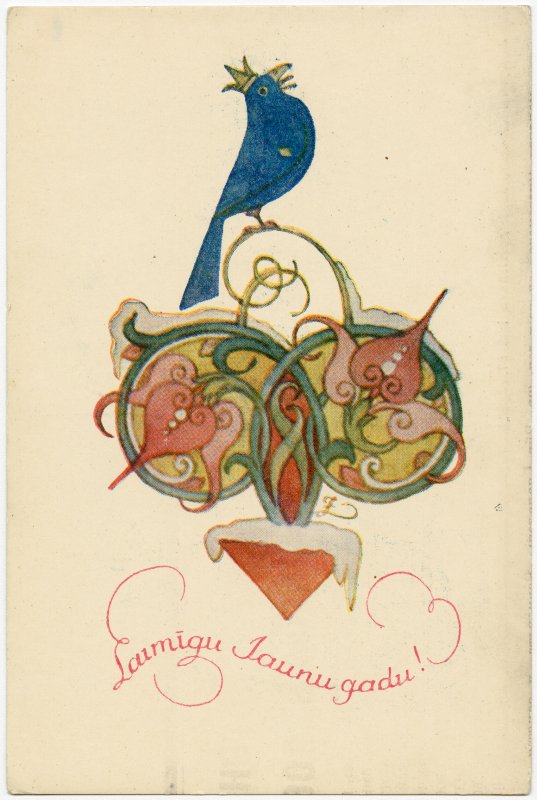 Laimīgu Jaunu gadu!